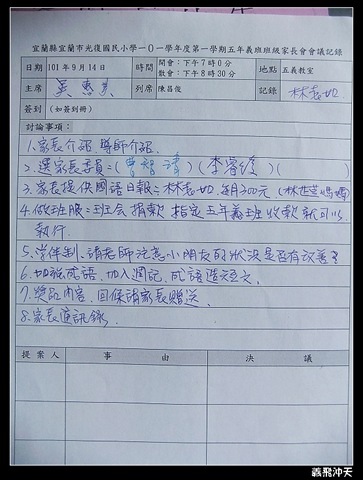 宜蘭縣宜蘭市光復國民小學一0一學年度第一學期五年義班班級家長會會議記錄
日期 101年9月14日 時間 開會：下午7時0分 散會：下午8時30分 地點 五義教室
主席 列席 陳昌俊 記錄 林志如
簽到 (如簽到冊)
討論事項：
1.家長介紹 導師介紹.
2.選家長委員=(曾智靖)(李睿綾)( )
3.家長提供國語日報=林志如 每月200元 (林芷萱媽媽)
4.做班服=班會捐款 指定五年義班收款就可以
執行.
5.營伴制,請老師注意小朋友的狀況是否有改善?
6.加強成語.加入週記.成語造短文.
7.獎品內容.回條請家長贈送.
8.家長通訊錄.
提案人 事由 決議
義飛沖天